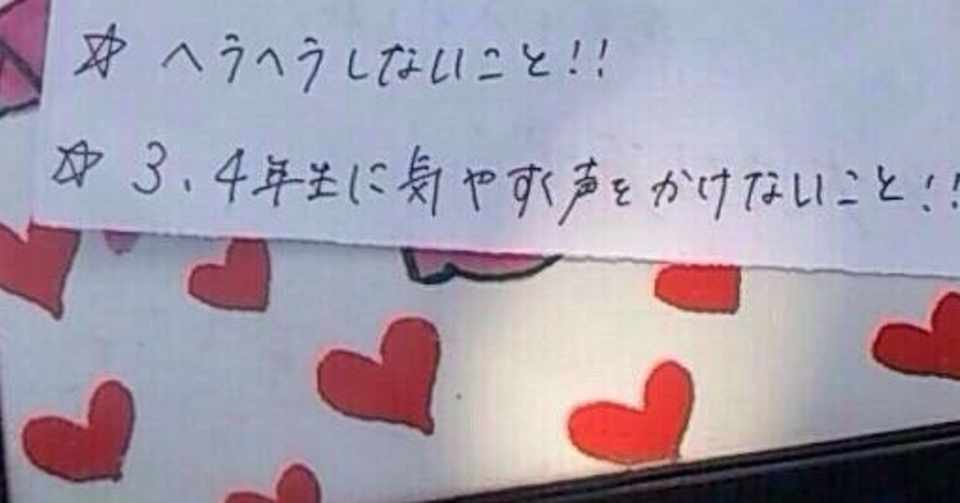 ☆ ヘラヘラしないこと!!
☆ 3、4年生に気やすく声をかけないこと!!